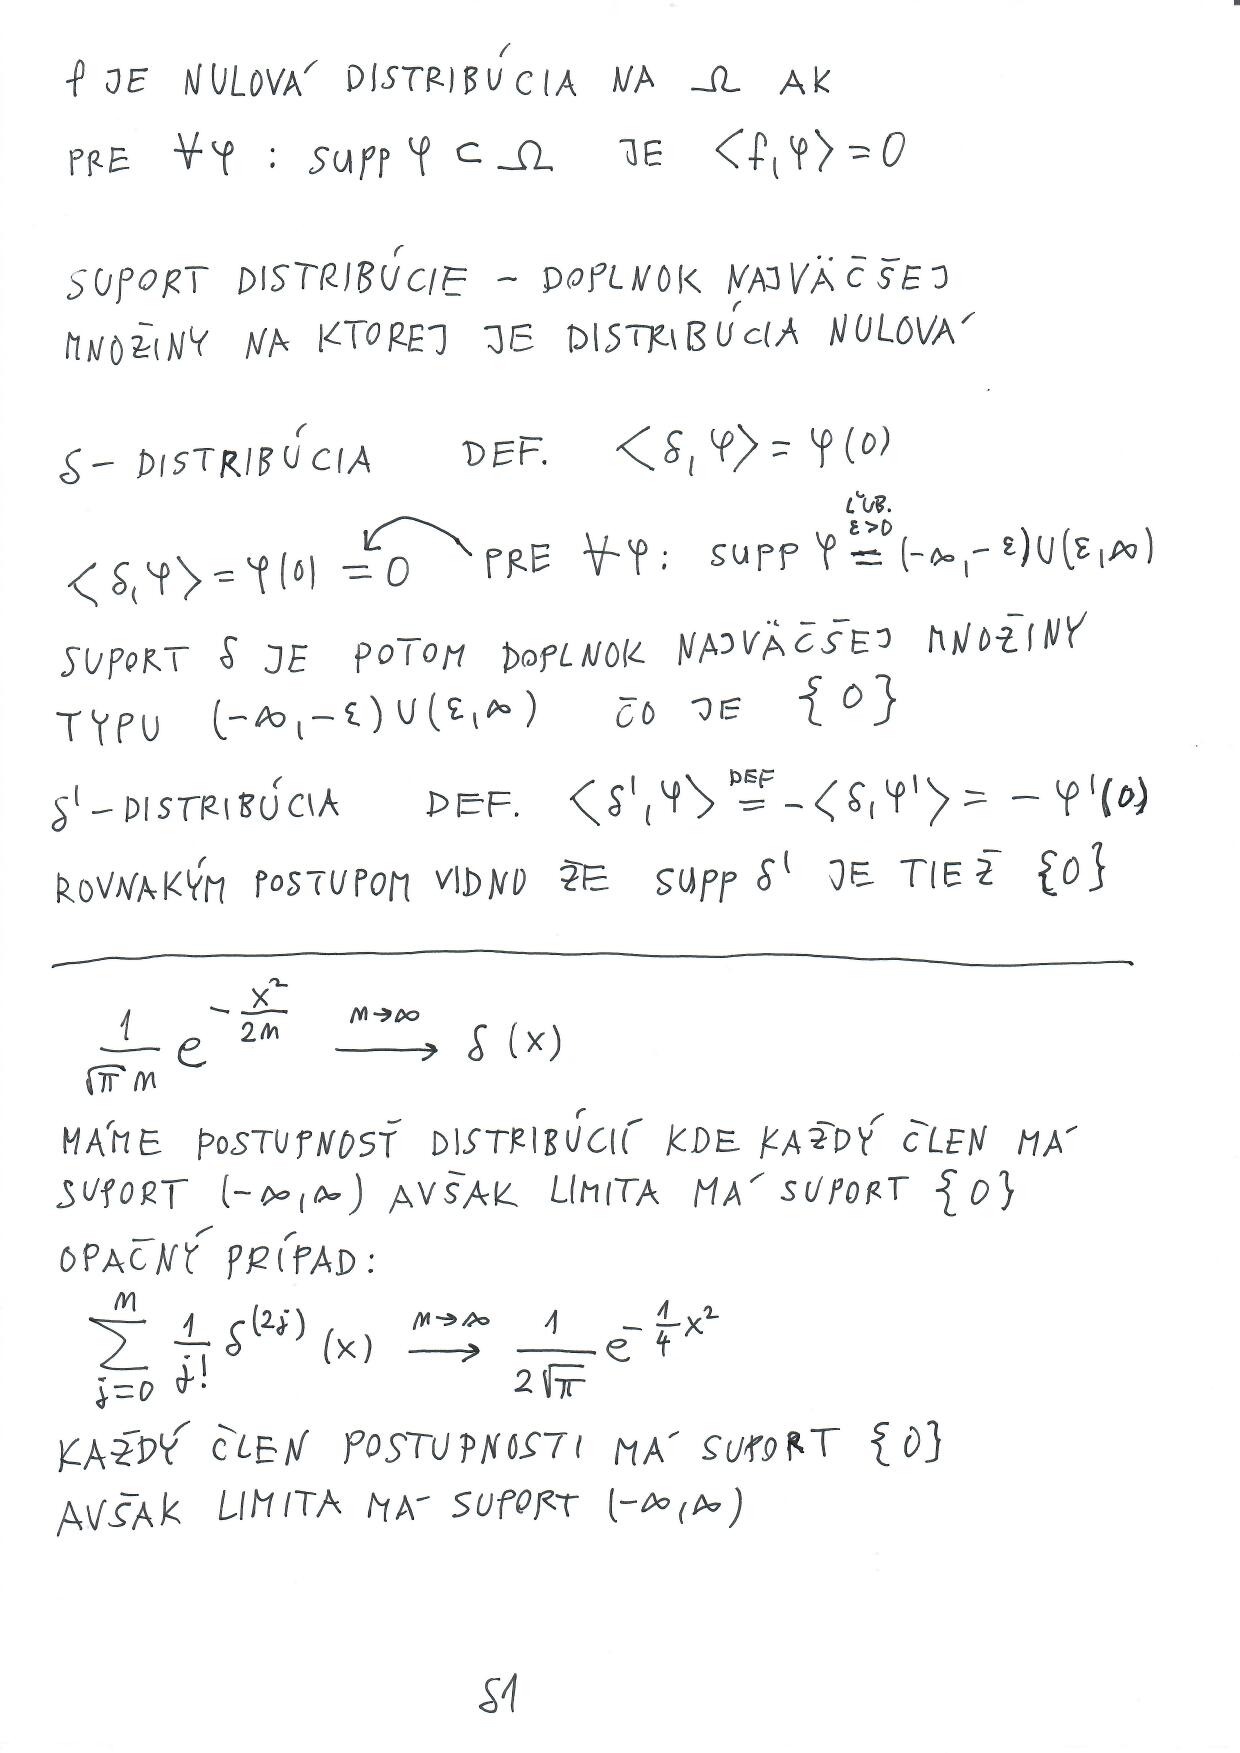 f JE NULOVÁ DISTRIBÚCIA NA Ω AK
PRE ∀φ : SUPP φ ⊂ Ω JE ⟨f,φ⟩ = 0
SUPORT DISTRIBÚCIE – DOPLNOK NAJVÄČŠEJ
MNOŽINY NA KTOREJ JE DISTRIBÚCIA NULOVÁ
δ – DISTRIBÚCIA DEF. ⟨δ,φ⟩ = φ(0)
ĽUB.
ε>0
⟨δ,φ⟩ = φ(0) = 0 PRE ∀φ: SUPP φ = (-∞,-ε)∪(ε,∞)
SUPORT δ JE POTOM DOPLNOK NAJVÄČŠEJ MNOŽINY
TYPU (-∞,-ε)∪(ε,∞) ČO JE {0}
δ' – DISTRIBÚCIA DEF. ⟨δ',φ⟩ =^{DEF} -⟨δ,φ'⟩ = -φ'(0)
ROVNAKÝM POSTUPOM VIDNO ŽE SUPP δ' JE TIEŽ {0}
\frac{1}{\sqrt{π} n} e^{-\frac{x^2}{2n}} \xrightarrow{n→∞} δ(x)
MÁME POSTUPNOSŤ DISTRIBÚCIÍ KDE KAŽDÝ ČLEN MÁ
SUPORT (-∞,∞) AVŠAK LIMITA MÁ SUPORT {0}
OPAČNÝ PRÍPAD:
\sum_{j=0}^{n} \frac{1}{j!} δ^{(2j)}(x) \xrightarrow{n→∞} \frac{1}{2\sqrt{π}} e^{-\frac{1}{4}x^2}
KAŽDÝ ČLEN POSTUPNOSTI MÁ SUPORT {0}
AVŠAK LIMITA MÁ SUPORT (-∞,∞)
δ1